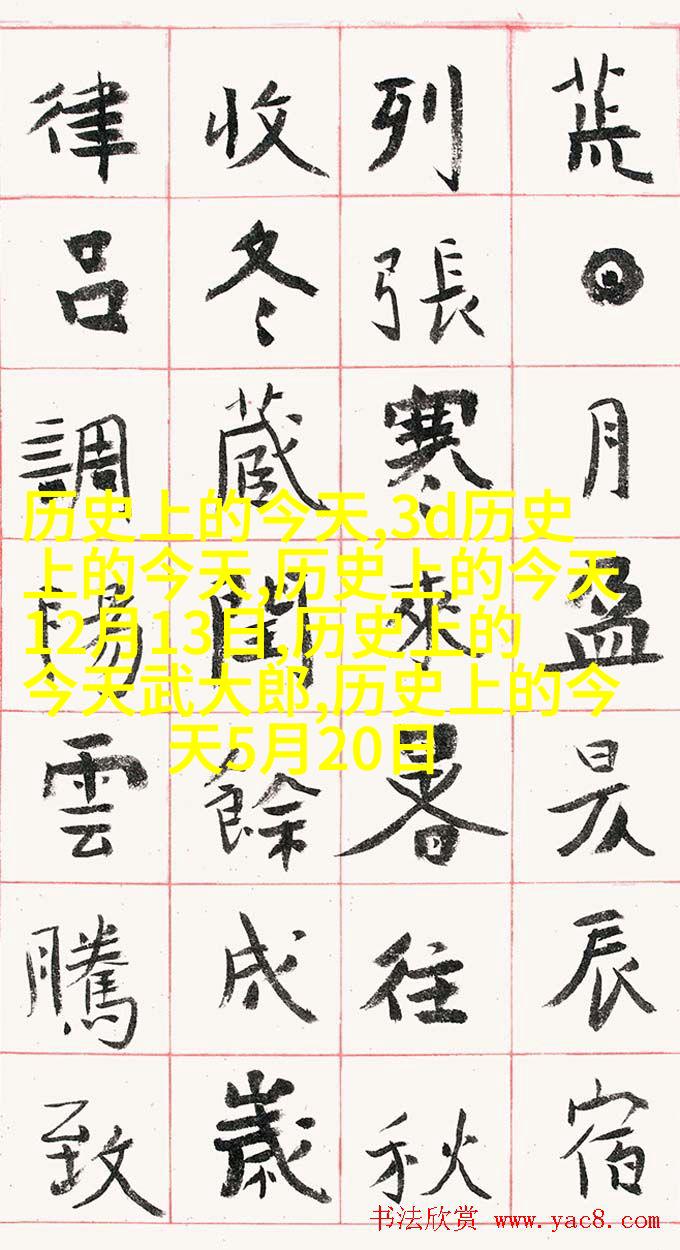 荒日月盈昃辰宿
列張寒來暑往秋
收冬藏閏餘成歲
律吕調陽雲騰致
历史上的今天,3d历史
上的今天,历史上的今天
12月13日,历史上的
今天武大郎,历史上的今
天5月20日
书法欣赏 www.yac8.com